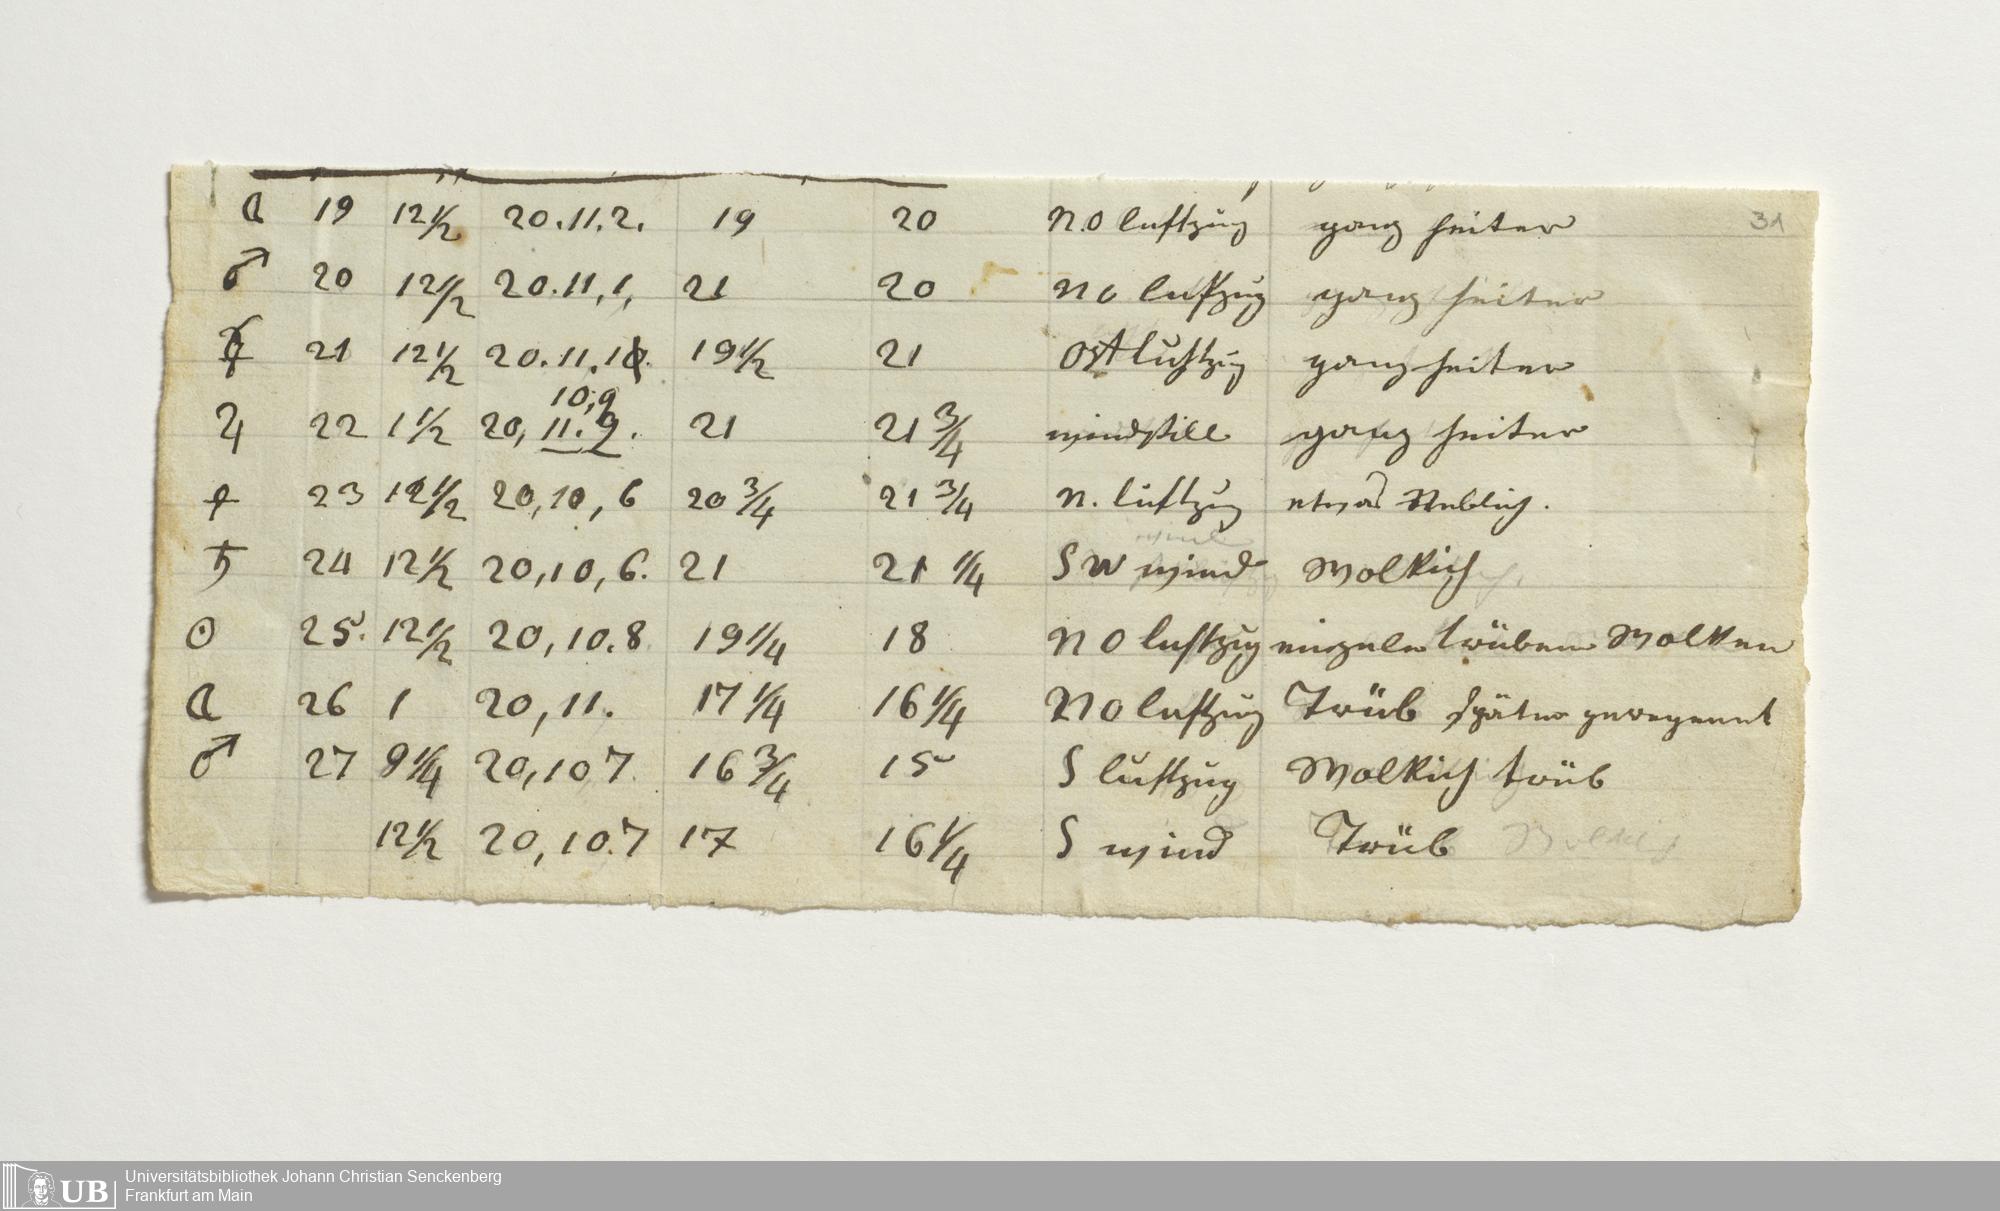 31
☾ 19 12 1/2 20.11.2. 19 20 N.O luftzug ganz heiter
♂ 20 12 1/2 20.11,1, 21 20 NO luftzug ganz heiter
☿ 21 12 1/2 20.11.10. 19 1/2 21 Ost luftzug ganz heiter
10,9
♃ 22 1 1/2 20, 11.9. 21 21 3/4 windstill ganz heiter
♀ 23 12 1/2 20,10,6 20 3/4 21 3/4 N. luftzug etwas Neblich.
♄ 24 12 1/2 20,10,6. 21 21 1/4 SW wind Wolkich
☉ 25. 12 1/2 20,10.8 19 1/4 18 NO luftzug einzeln trüben Wolken
☾ 26 1 20,11. 17 1/4 16 1/4 NO luftzug Trüb später geregennt
♂ 27 9 1/4 20,10 7. 16 3/4 15 S luftzug Wolkich trüb
12 1/2 20,10.7 17 16 1/4 S wind Trüb
UB Universitätsbibliothek Johann Christian Senckenberg
Frankfurt am Main